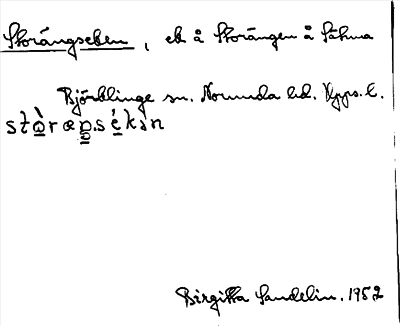 Storängseken, ek å Storängen å Sätuna
Björklinge sn. Norunda hd. Upps. l.
stɷ̀ræŋsékìn
Birgitta Sandelin. 1952